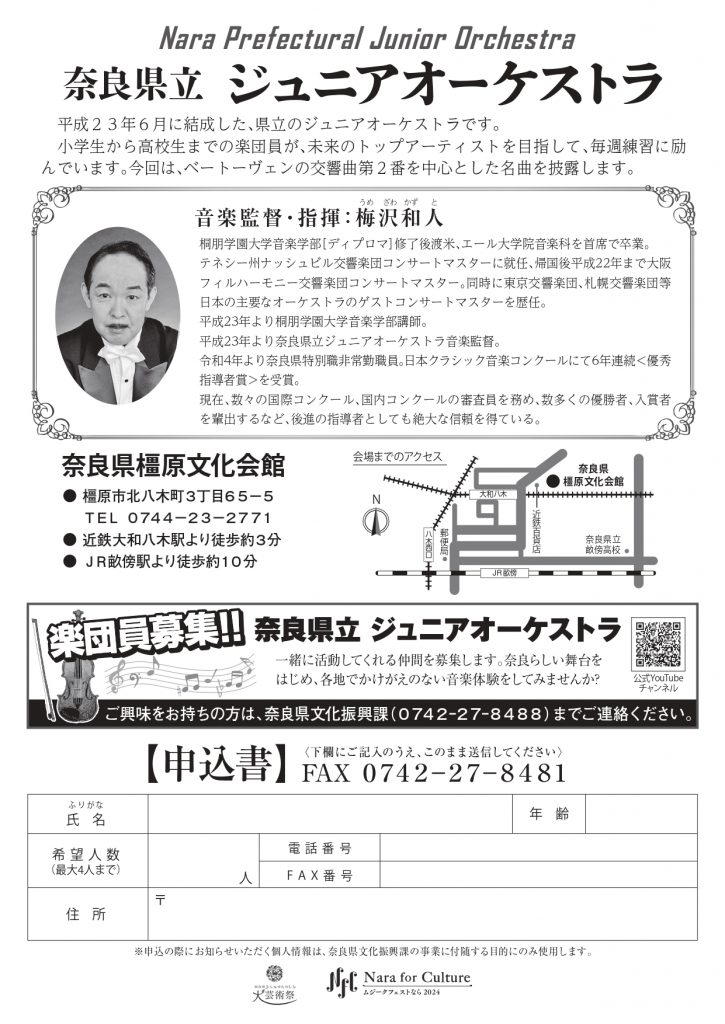 Nara Prefectural Junior Orchestra
奈良県立 ジュニアオーケストラ
平成23年6月に結成した、県立のジュニアオーケストラです。
小学生から高校生までの楽団員が、未来のトップアーティストを目指して、毎週練習に励
んでいます。今回は、ベートーヴェンの交響曲第2番を中心とした名曲を披露します。
うめ ざわ かず と
音楽監督・指揮：梅沢和人
桐朋学園大学音楽学部[ディプロマ]修了後渡米、エール大学院音楽科を首席で卒業。
テネシー州ナッシュビル交響楽団コンサートマスターに就任、帰国後平成22年まで大阪
フィルハーモニー交響楽団コンサートマスター。同時に東京交響楽団、札幌交響楽団等
日本の主要なオーケストラのゲストコンサートマスターを歴任。
平成23年より桐朋学園大学音楽学部講師。
平成23年より奈良県立ジュニアオーケストラ音楽監督。
令和4年より奈良県特別職非常勤職員。日本クラシック音楽コンクールにて6年連続＜優秀
指導者賞＞を受賞。
現在、数々の国際コンクール、国内コンクールの審査員を務め、数多くの優勝者、入賞者
を輩出するなど、後進の指導者としても絶大な信頼を得ている。
奈良県橿原文化会館
● 橿原市北八木町3丁目65－5
TEL 0744－23－2771
● 近鉄大和八木駅より徒歩約3分
● JR畝傍駅より徒歩約10分
会場までのアクセス
N
奈良県
橿原文化会館
大和八木
八木西口
郵便局
近鉄百貨店
奈良県立
畝傍高校
JR畝傍
楽団員募集!! 奈良県立 ジュニアオーケストラ
一緒に活動してくれる仲間を募集します。奈良らしい舞台を
はじめ、各地でかけがえのない音楽体験をしてみませんか?
公式YouTube
チャンネル
ご興味をお持ちの方は、奈良県文化振興課（0742-27-8488）までご連絡ください。
【申込書】
〈下欄にご記入のうえ、このまま送信してください〉
FAX 0742－27－8481
ふりがな
氏 名
年 齢
希望人数
（最大4人まで）
人
電話番号
FAX番号
住 所
〒
※申込の際にお知らせいただく個人情報は、奈良県文化振興課の事業に付随する目的にのみ使用します。
大芸術祭
Nara for Culture
ムジークフェストなら2024